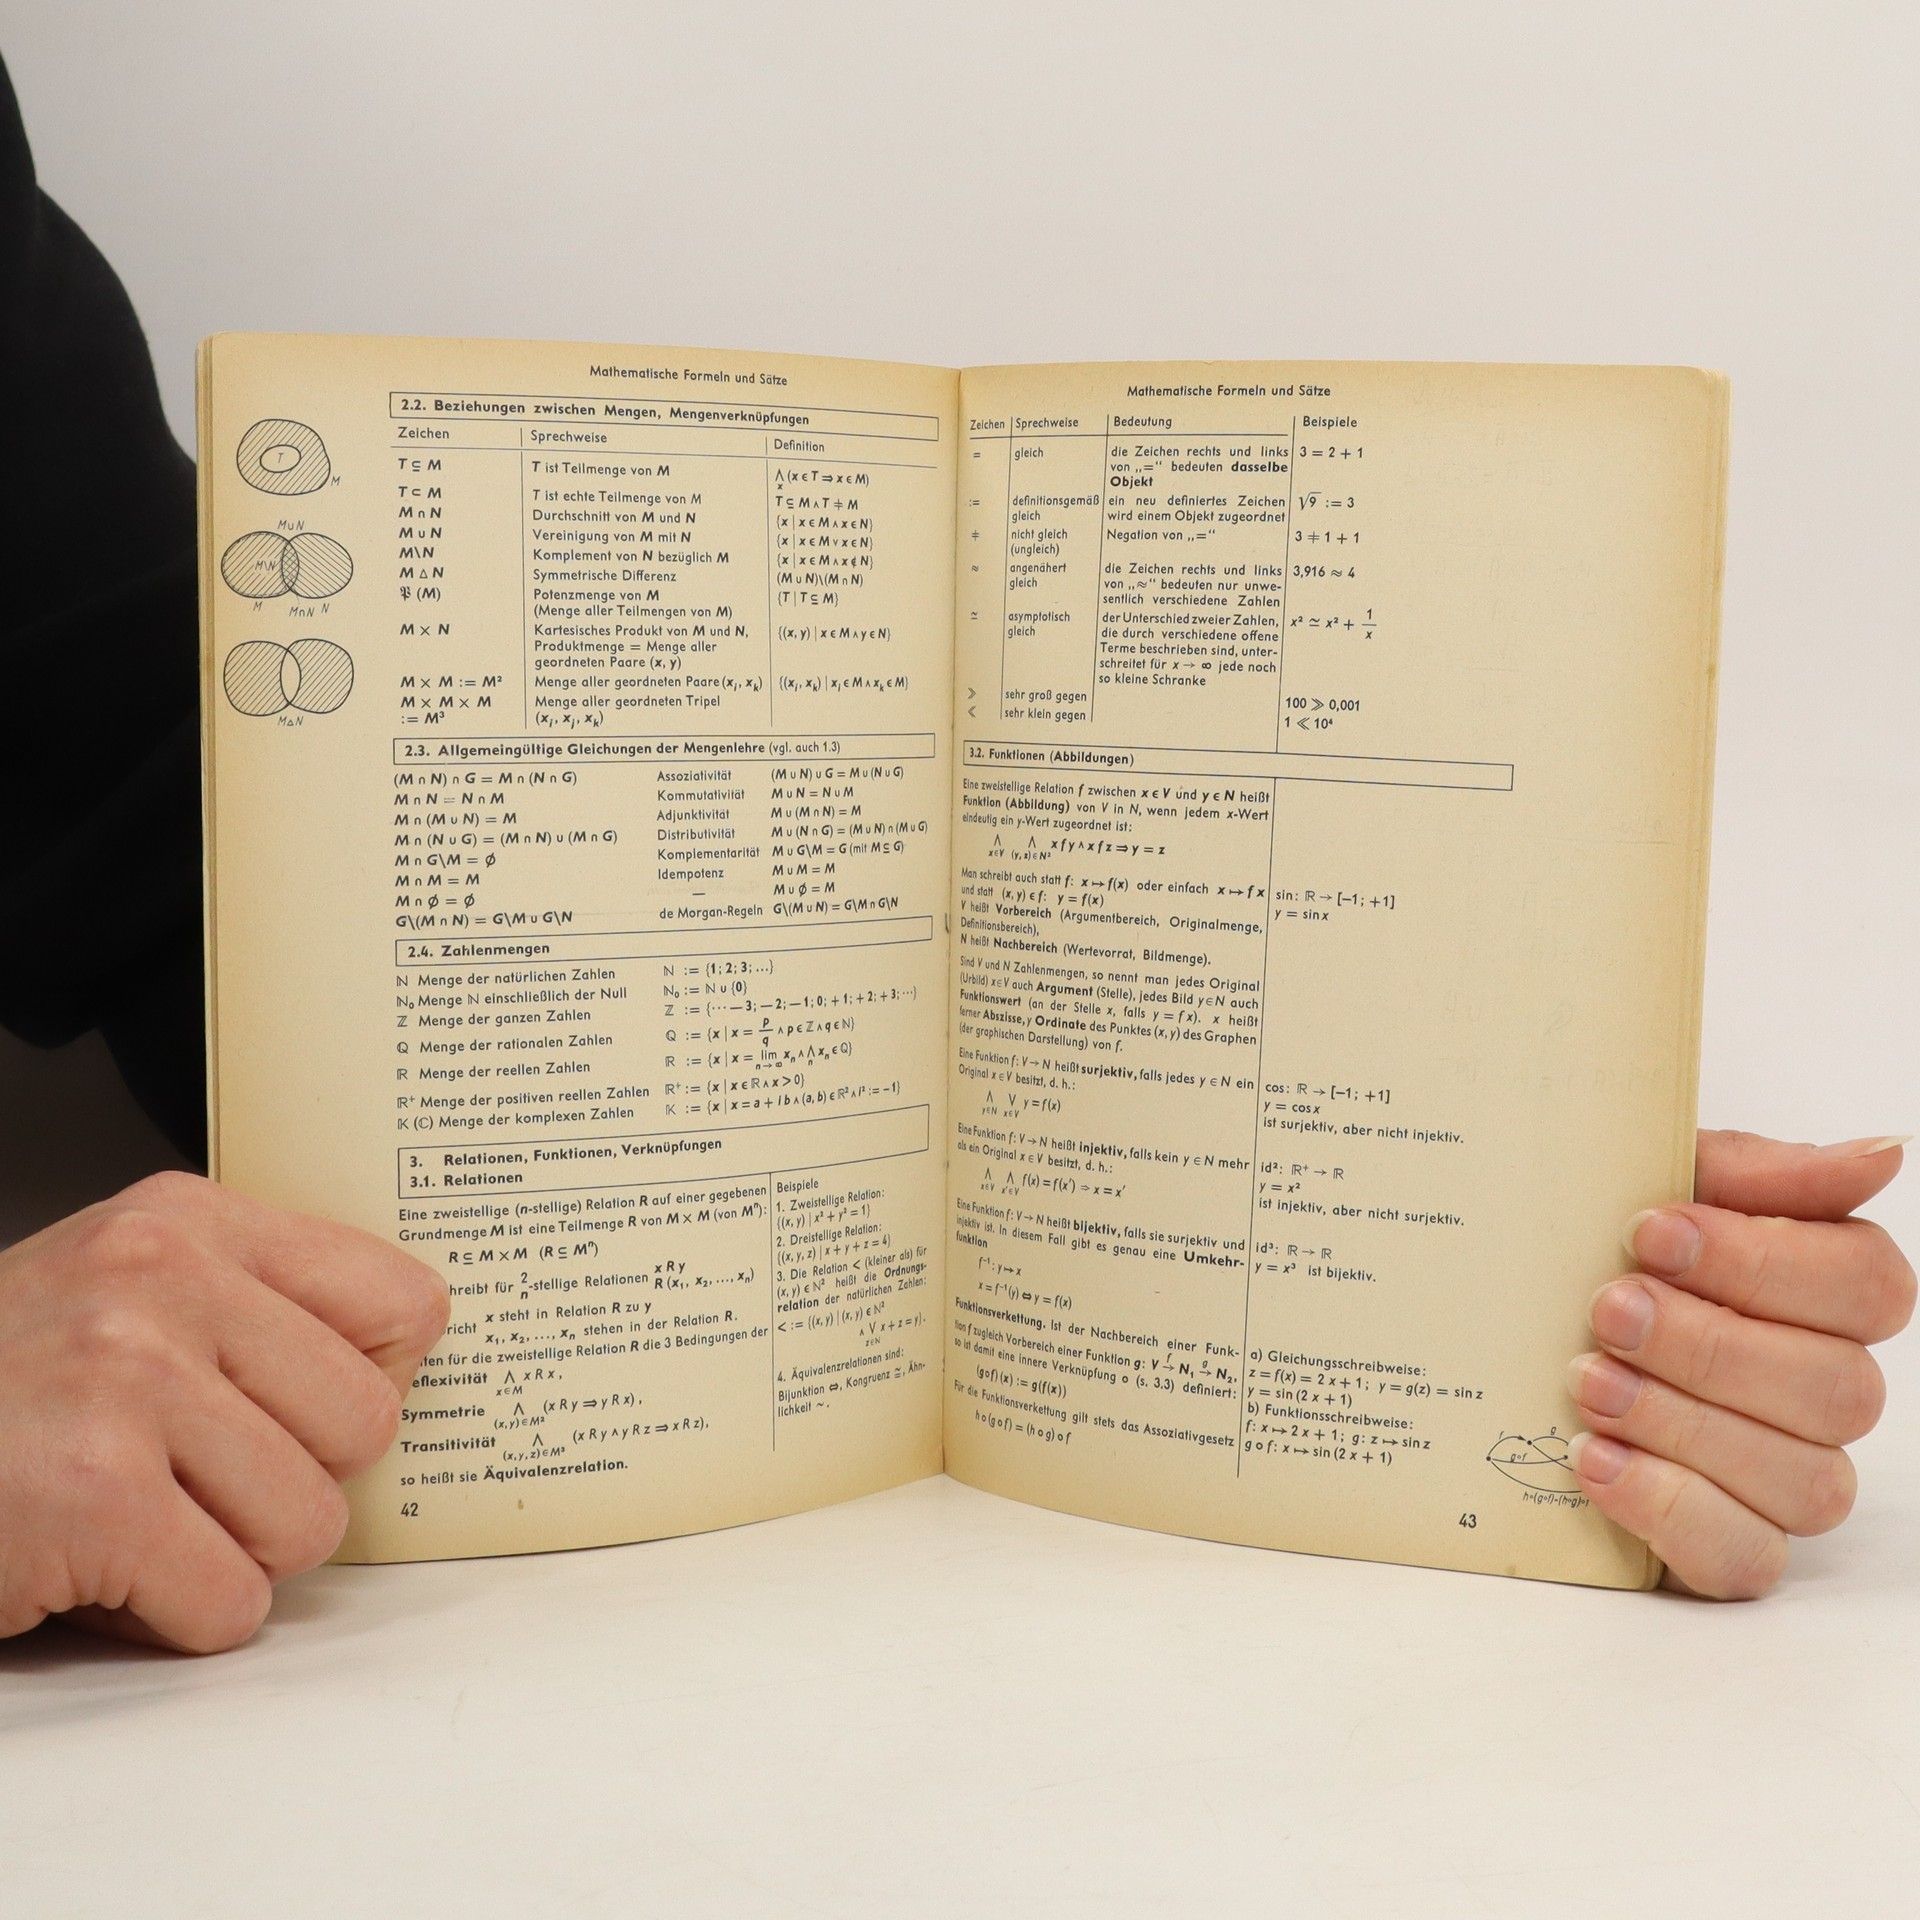 Mathematische Formeln und Sätze
2.2. Beziehungen zwischen Mengen, Mengenverknüpfungen
Zeichen Sprechweise Definition
T ⊆ M T ist Teilmenge von M ⋀x (x ∈ T ⇒ x ∈ M)
T ⊂ M T ist echte Teilmenge von M T ⊆ M ∧ T ≠ M
M ∩ N Durchschnitt von M und N {x | x ∈ M ∧ x ∈ N}
M ∪ N Vereinigung von M mit N {x | x ∈ M ∨ x ∈ N}
M\N Komplement von N bezüglich M {x | x ∈ M ∧ x ∉ N}
M △ N Symmetrische Differenz (M ∪ N)\(M ∩ N)
𝔓 (M) Potenzmenge von M {T | T ⊆ M}
(Menge aller Teilmengen von M)
M × N Kartesisches Produkt von M und N, {(x, y) | x ∈ M ∧ y ∈ N}
Produktmenge = Menge aller
geordneten Paare (x, y)
M × M := M² Menge aller geordneten Paare (xⱼ, xₖ) {(xⱼ, xₖ) | xⱼ ∈ M ∧ xₖ ∈ M}
M × M × M Menge aller geordneten Tripel
:= M³ (xᵢ, xⱼ, xₖ)
T
M
M∪N
M\N
M M∩N N
M△N
2.3. Allgemeingültige Gleichungen der Mengenlehre (vgl. auch 1.3)
(M ∩ N) ∩ G = M ∩ (N ∩ G) Assoziativität (M ∪ N) ∪ G = M ∪ (N ∪ G)
M ∩ N = N ∩ M Kommutativität M ∪ N = N ∪ M
M ∩ (M ∪ N) = M Adjunktivität M ∪ (M ∩ N) = M
M ∩ (N ∪ G) = (M ∩ N) ∪ (M ∩ G) Distributivität M ∪ (N ∩ G) = (M ∪ N) ∩ (M ∪ G)
M ∩ G\M = ∅ Komplementarität M ∪ G\M = G (mit M ⊆ G)
M ∩ M = M Idempotenz M ∪ M = M
M ∩ ∅ = ∅ — M ∪ ∅ = M
G\(M ∩ N) = G\M ∪ G\N de Morgan-Regeln G\(M ∪ N) = G\M ∩ G\N
2.4. Zahlenmengen
ℕ Menge der natürlichen Zahlen ℕ := {1; 2; 3; ...}
ℕ₀ Menge ℕ einschließlich der Null ℕ₀ := ℕ ∪ {0}
ℤ Menge der ganzen Zahlen ℤ := {··· — 3; — 2; — 1; 0; + 1; + 2; + 3; ···}
ℚ Menge der rationalen Zahlen ℚ := {x | x = p/q ∧ p ∈ ℤ ∧ q ∈ ℕ}
ℝ Menge der reellen Zahlen ℝ := {x | x = lim n→∞ xₙ ∧ ⋀n xₙ ∈ ℚ}
ℝ⁺ Menge der positiven reellen Zahlen ℝ⁺ := {x | x ∈ ℝ ∧ x > 0}
𝕂 (ℂ) Menge der komplexen Zahlen 𝕂 := {x | x = a + i b ∧ (a, b) ∈ ℝ² ∧ i² := −1}
3. Relationen, Funktionen, Verknüpfungen
3.1. Relationen
Eine zweistellige (n-stellige) Relation R auf einer gegebenen
Grundmenge M ist eine Teilmenge R von M × M (von Mⁿ):
R ⊆ M × M (R ⊆ Mⁿ)
hreibt für 2/n-stellige Relationen x R y
R (x₁, x₂, ..., xₙ)
richt x steht in Relation R zu y
x₁, x₂, ..., xₙ stehen in der Relation R.
ten für die zweistellige Relation R die 3 Bedingungen der
eflexivität ⋀ x∈M x R x,
Symmetrie ⋀ (x, y)∈M² (x R y ⇒ y R x),
Transitivität ⋀ (x, y, z)∈M³ (x R y ∧ y R z ⇒ x R z),
so heißt sie Äquivalenzrelation.
Beispiele
1. Zweistellige Relation:
{(x, y) | x² + y² = 1}
2. Dreistellige Relation:
{(x, y, z) | x + y + z = 4}
3. Die Relation < (kleiner als) für
(x, y) ∈ ℕ² heißt die Ordnungs-
relation der natürlichen Zahlen:
< := {(x, y) | (x, y) ∈ ℕ²
∧ ⋁ z∈ℕ x + z = y}.
4. Äquivalenzrelationen sind:
Bijunktion ⇔, Kongruenz ≅, Ähn-
lichkeit ~.
42
Mathematische Formeln und Sätze
Zeichen Sprechweise Bedeutung Beispiele
= gleich die Zeichen rechts und links 3 = 2 + 1
von „=“ bedeuten dasselbe
Objekt
:= definitionsgemäß ein neu definiertes Zeichen √9 := 3
gleich wird einem Objekt zugeordnet
≠ nicht gleich Negation von „=“ 3 ≠ 1 + 1
(ungleich)
≈ angenähert die Zeichen rechts und links 3,916 ≈ 4
gleich von „≈“ bedeuten nur unwe-
sentlich verschiedene Zahlen
≃ asymptotisch der Unterschied zweier Zahlen, x² ≃ x² + 1/x
gleich die durch verschiedene offene
Terme beschrieben sind, unter-
schreitet für x → ∞ jede noch
so kleine Schranke
≫ sehr groß gegen 100 ≫ 0,001
≪ sehr klein gegen 1 ≪ 10⁴
3.2. Funktionen (Abbildungen)
Eine zweistellige Relation f zwischen x ∈ V und y ∈ N heißt
Funktion (Abbildung) von V in N, wenn jedem x-Wert
eindeutig ein y-Wert zugeordnet ist:
⋀ x∈V ⋀ (y, z)∈N² x f y ∧ x f z ⇒ y = z
Man schreibt auch statt f: x ↦ f(x) oder einfach x ↦ f x
und statt (x, y) ∈ f: y = f(x)
V heißt Vorbereich (Argumentbereich, Originalmenge,
Definitionsbereich),
N heißt Nachbereich (Wertevorrat, Bildmenge).
Sind V und N Zahlenmengen, so nennt man jedes Original
(Urbild) x∈V auch Argument (Stelle), jedes Bild y∈N auch
Funktionswert (an der Stelle x, falls y = f x). x heißt
ferner Abszisse, y Ordinate des Punktes (x, y) des Graphen
(der graphischen Darstellung) von f.
Eine Funktion f: V → N heißt surjektiv, falls jedes y ∈ N ein
Original x ∈ V besitzt, d. h.:
⋀ y∈N ⋁ x∈V y = f(x)
Eine Funktion f: V → N heißt injektiv, falls kein y ∈ N mehr
als ein Original x ∈ V besitzt, d. h.:
⋀ x∈V ⋀ x'∈V f(x) = f(x') ⇒ x = x'
Eine Funktion f: V → N heißt bijektiv, falls sie surjektiv und
injektiv ist. In diesem Fall gibt es genau eine Umkehr-
funktion
f⁻¹: y ↦ x
x = f⁻¹(y) ⇔ y = f(x)
Funktionsverkettung. Ist der Nachbereich einer Funk-
tion f zugleich Vorbereich einer Funktion g: V →f N₁ →g N₂,
so ist damit eine innere Verknüpfung o (s. 3.3) definiert:
(g o f) (x) := g(f(x))
Für die Funktionsverkettung gilt stets das Assoziativgesetz
h o (g o f) = (h o g) o f
sin: ℝ → [−1; +1]
y = sin x
cos: ℝ → [−1; +1]
y = cos x
ist surjektiv, aber nicht injektiv.
id²: ℝ⁺ → ℝ
y = x²
ist injektiv, aber nicht surjektiv.
id³: ℝ → ℝ
y = x³ ist bijektiv.
a) Gleichungsschreibweise:
z = f(x) = 2 x + 1; y = g(z) = sin z
y = sin (2 x + 1)
b) Funktionsschreibweise:
f: x ↦ 2 x + 1; g: z ↦ sin z
g o f: x ↦ sin (2 x + 1)
f g
g∘f
h∘(g∘f)=(h∘g)∘f
43